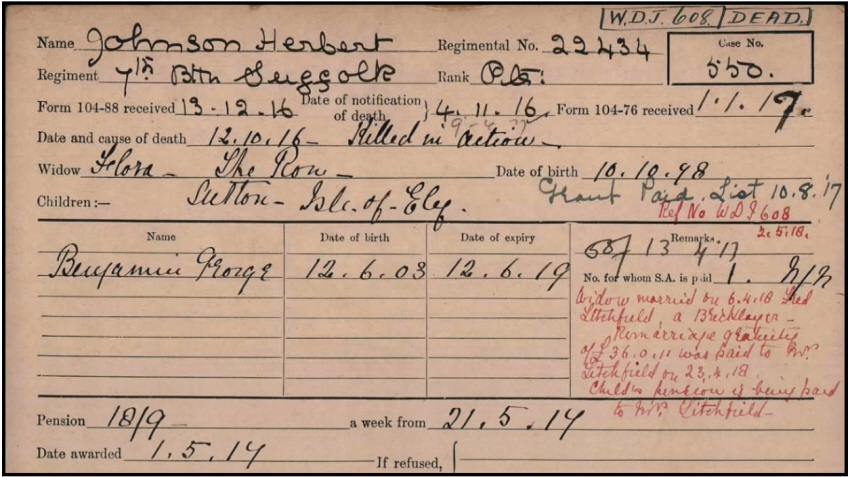 W.D.J. 608. DEAD.
Name Johnson Herbert Regimental No. 22434 Case No.
550.
Regiment 7th Btn Suffolk Rank Pte:
Form 104-88 received 13.12.16 Date of notification of death, } 4.11.16. Form 104-76 received 1.1.17.
Date and cause of death 12.10.16 - Killed in action -
Widow Flora - The Row - Date of birth 10.10.78
Grant Paid. List 10.8.17
Children:— Sutton - Isle-of-Ely.
Ref No WDJ 608
2.5.18.
Name Date of birth Date of expiry Remarks.
13 4 17
Benjamin George 12.6.03 12.6.19 No. for whom S.A. is paid 1.
Widow married on 6.4.18 Fred
Litchfield, a Bricklayer -
Remarriage gratuity
of £36.0.11 was paid to Mrs.
Litchfield on 23.4.18.
Child's pension is being paid
to Mrs. Litchfield -
Pension 18/9 - a week from 21.5.17
Date awarded 1.5.17 If refused, {